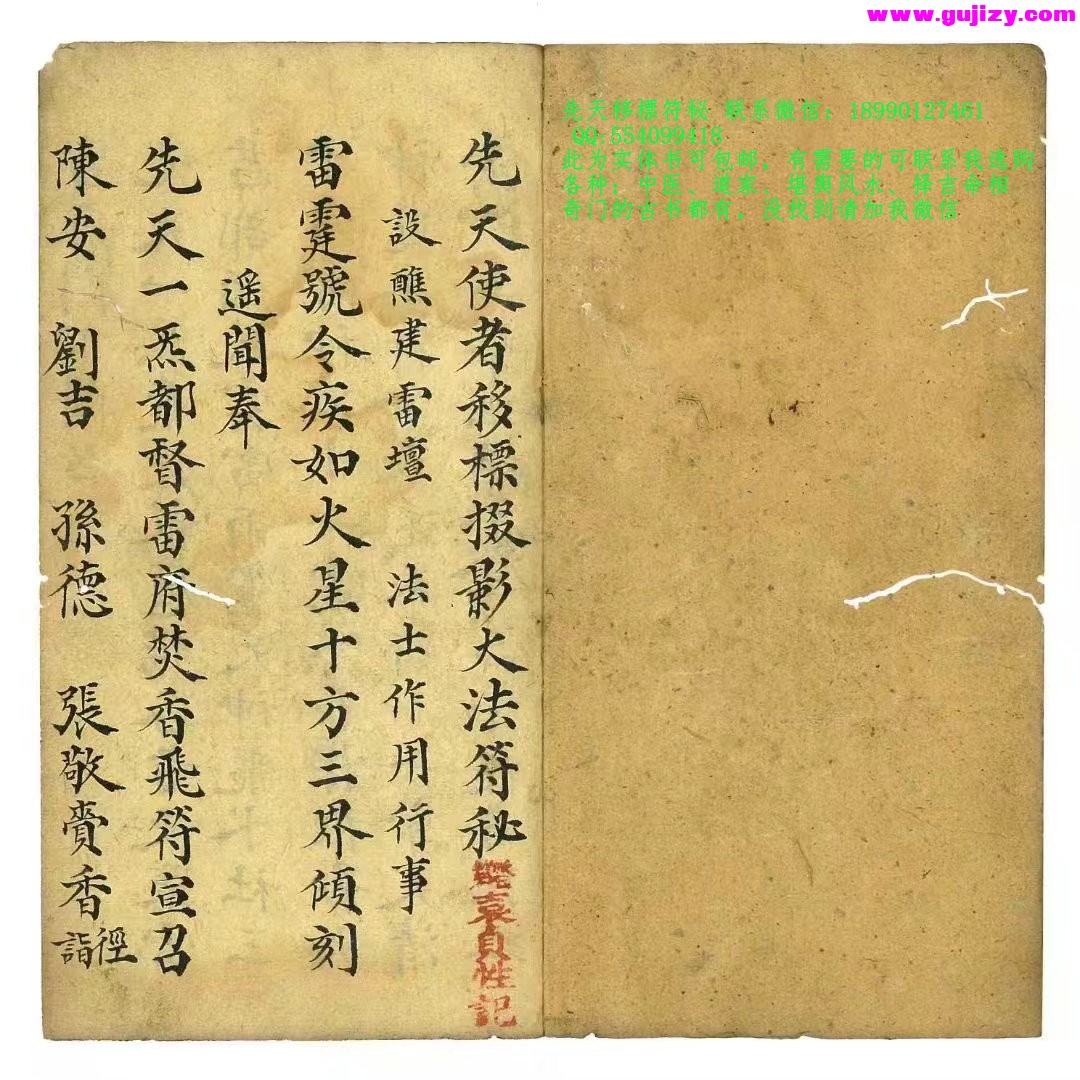 www.gujizy.com
先天移標符秘 联系微信：18990127461
QQ:554099418
此为实体书可包邮，有需要的可联系我选购
各种；中医、道家、堪舆风水、择吉命相
奇门的古书都有，没找到请加我微信
先天使者移標掇影大法符秘
袁貞性記
設醮建雷壇 法士作用行事
雷霆號令疾如火星十方三界傾刻
遥聞奉
先天一炁都督雷府焚香飛符宣召
陳安 劉吉 孫德 張敬賫香徑詣